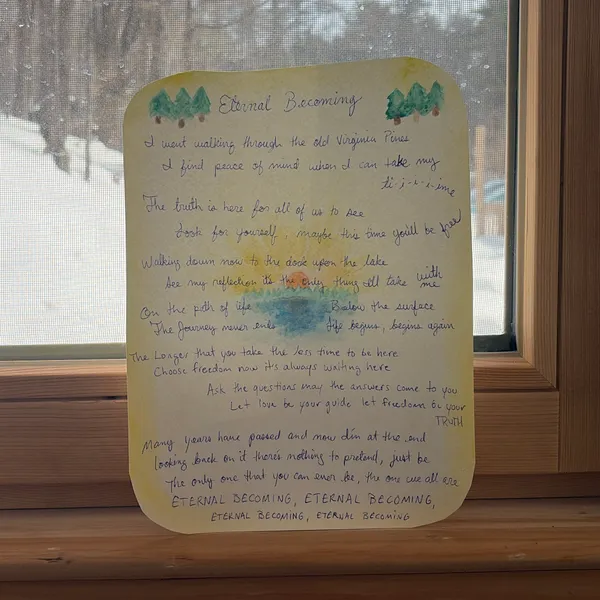 Eternal Becoming
I went walking through the old Virginia Pines
I find peace of mind when I can take my
ti-i-i-i-ime
The truth is here for all of us to see
Look for yourself, maybe this time you'll be free
Walking down now to the dock upon the lake
See my reflection it's the only thing I'll take with me
On the path of life Below the surface
The Journey never ends life begins, begins again
The Longer that you take the less time to be here
Choose freedom now it's always waiting here
Ask the questions may the answers come to you
Let love be your guide let freedom be your
TRUTH
Many years have passed and now I'm at the end
looking back on it there's nothing to pretend, just be
The only one that you can ever be, the one we all are
ETERNAL BECOMING, ETERNAL BECOMING,
ETERNAL BECOMING, ETERNAL BECOMING